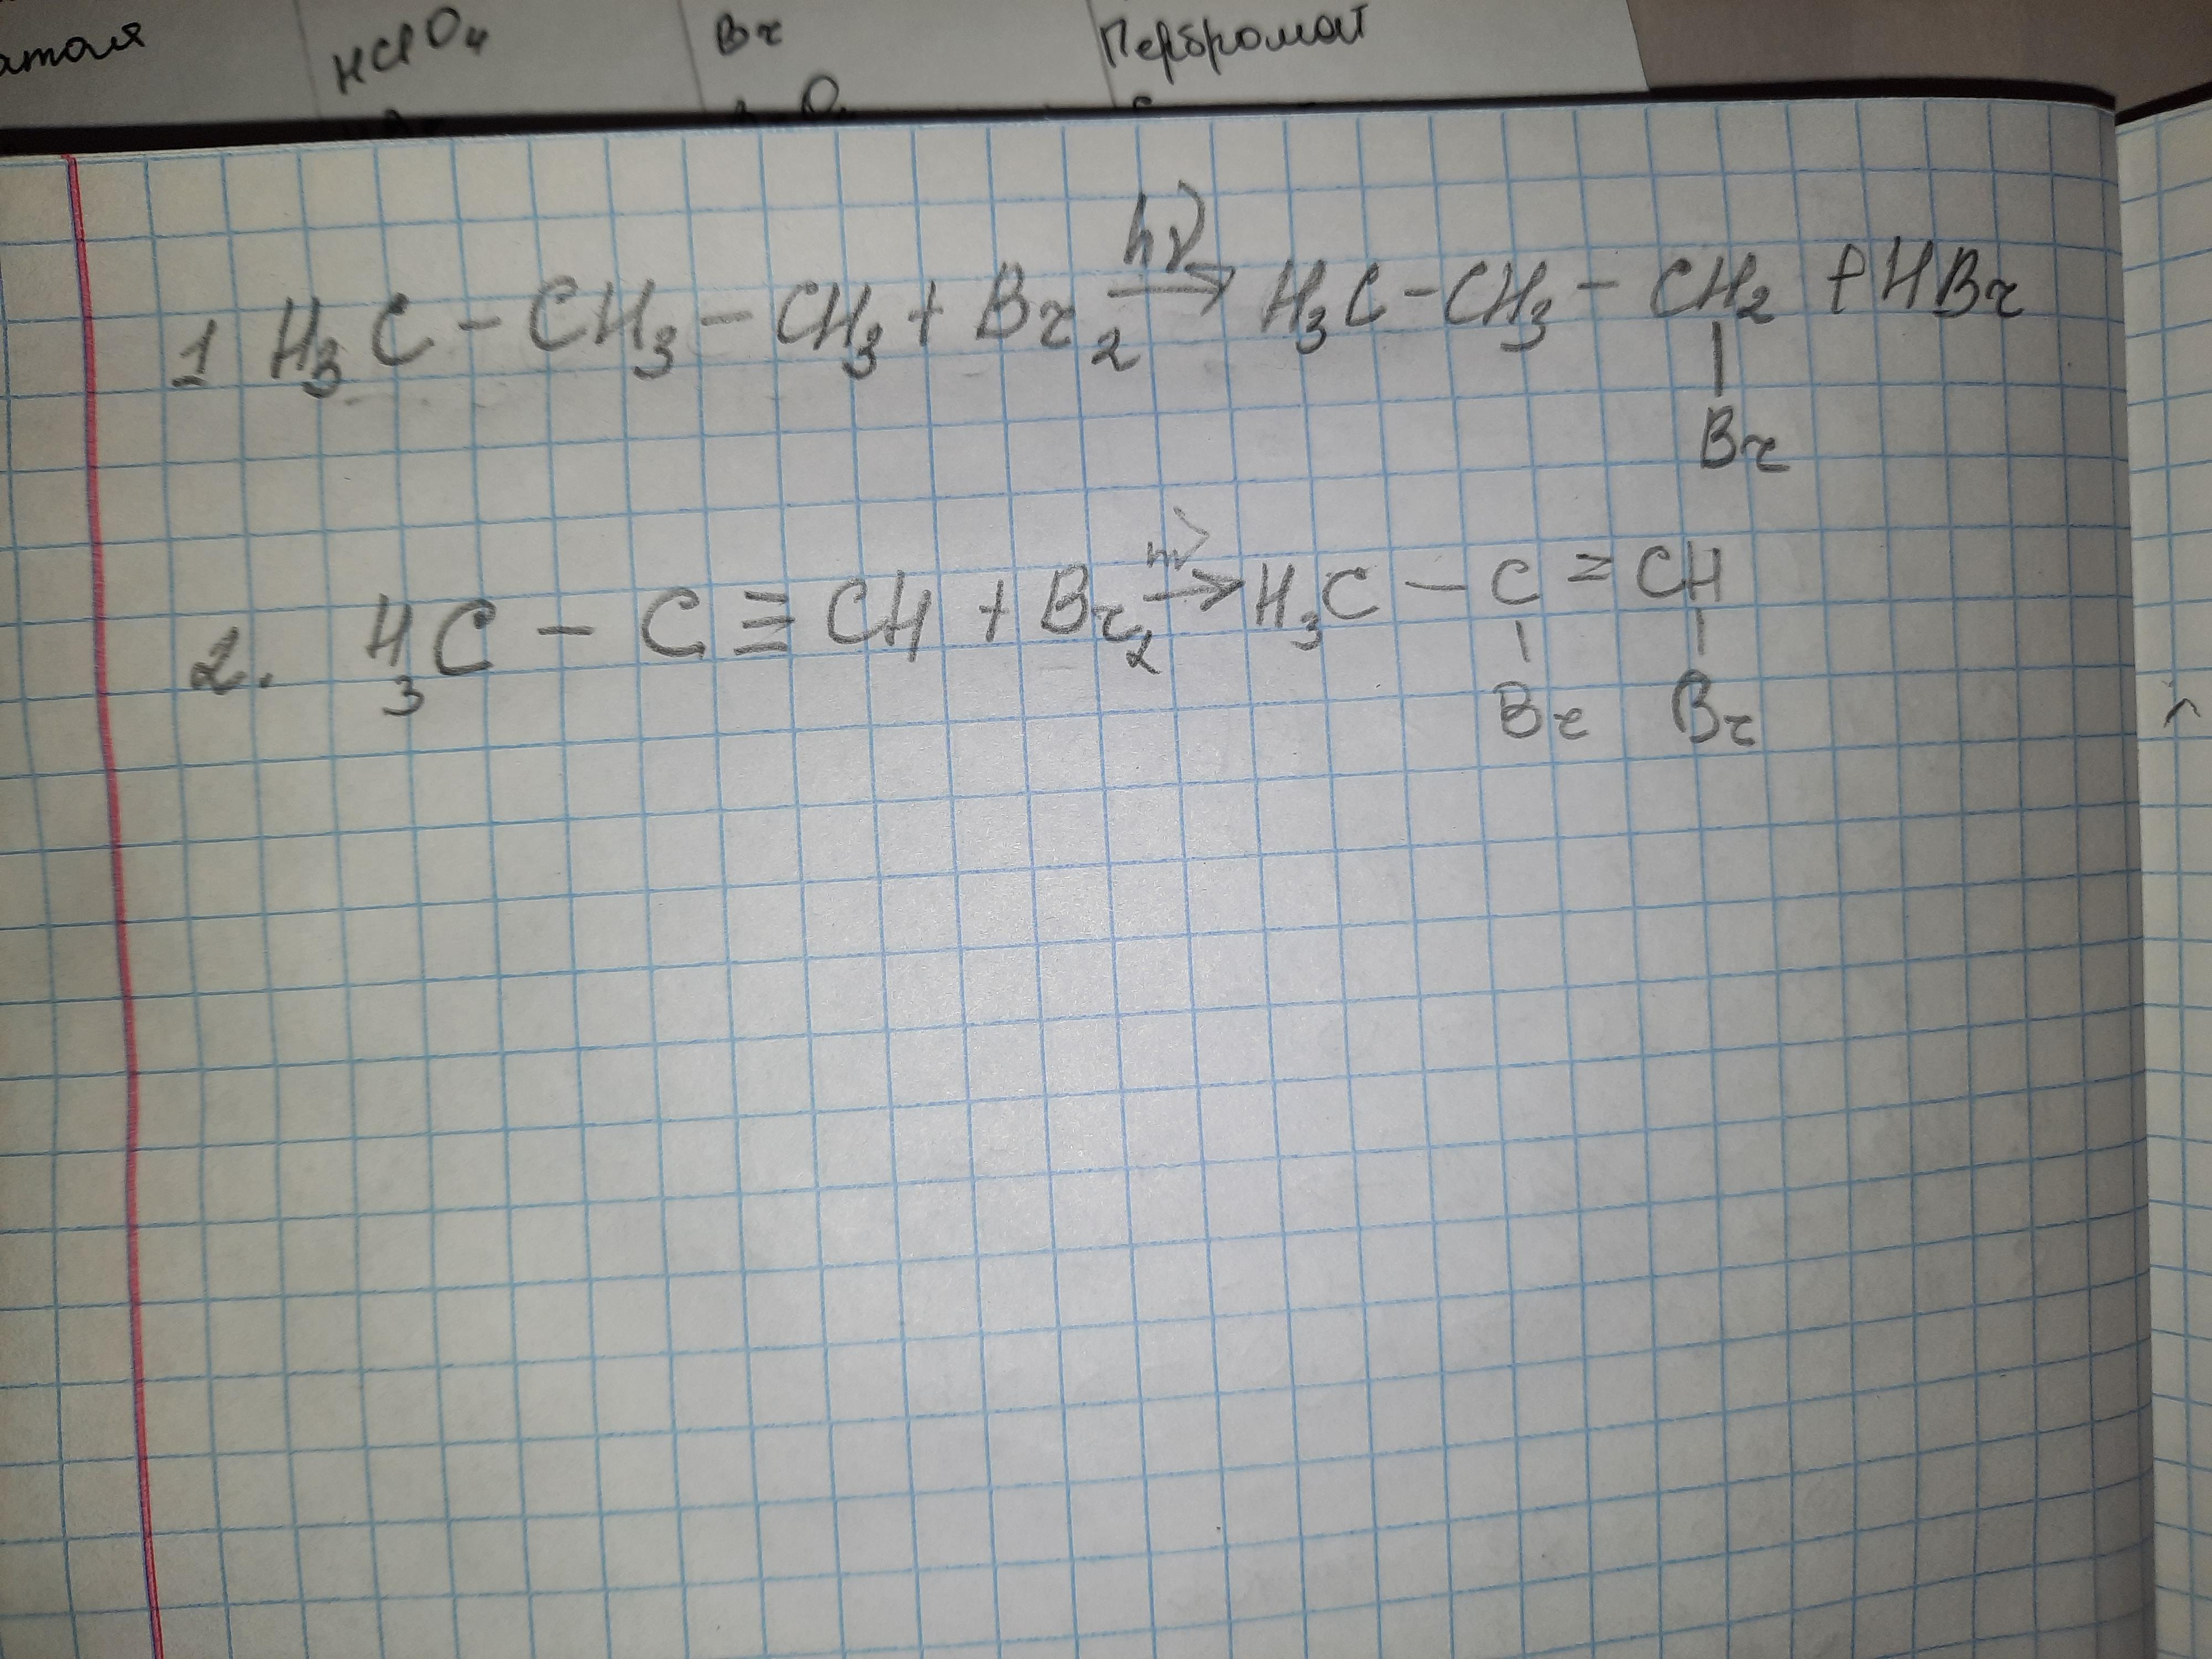 HClO₄ Br Пербромат
1 H₃C – CH₃ – CH₃ + Br₂ hν → H₃C – CH₃ – CH₂ + HBr
|
Br
2. H₃C – C ≡ CH + Br₂ → H₃C – C = CH
| |
Br Br